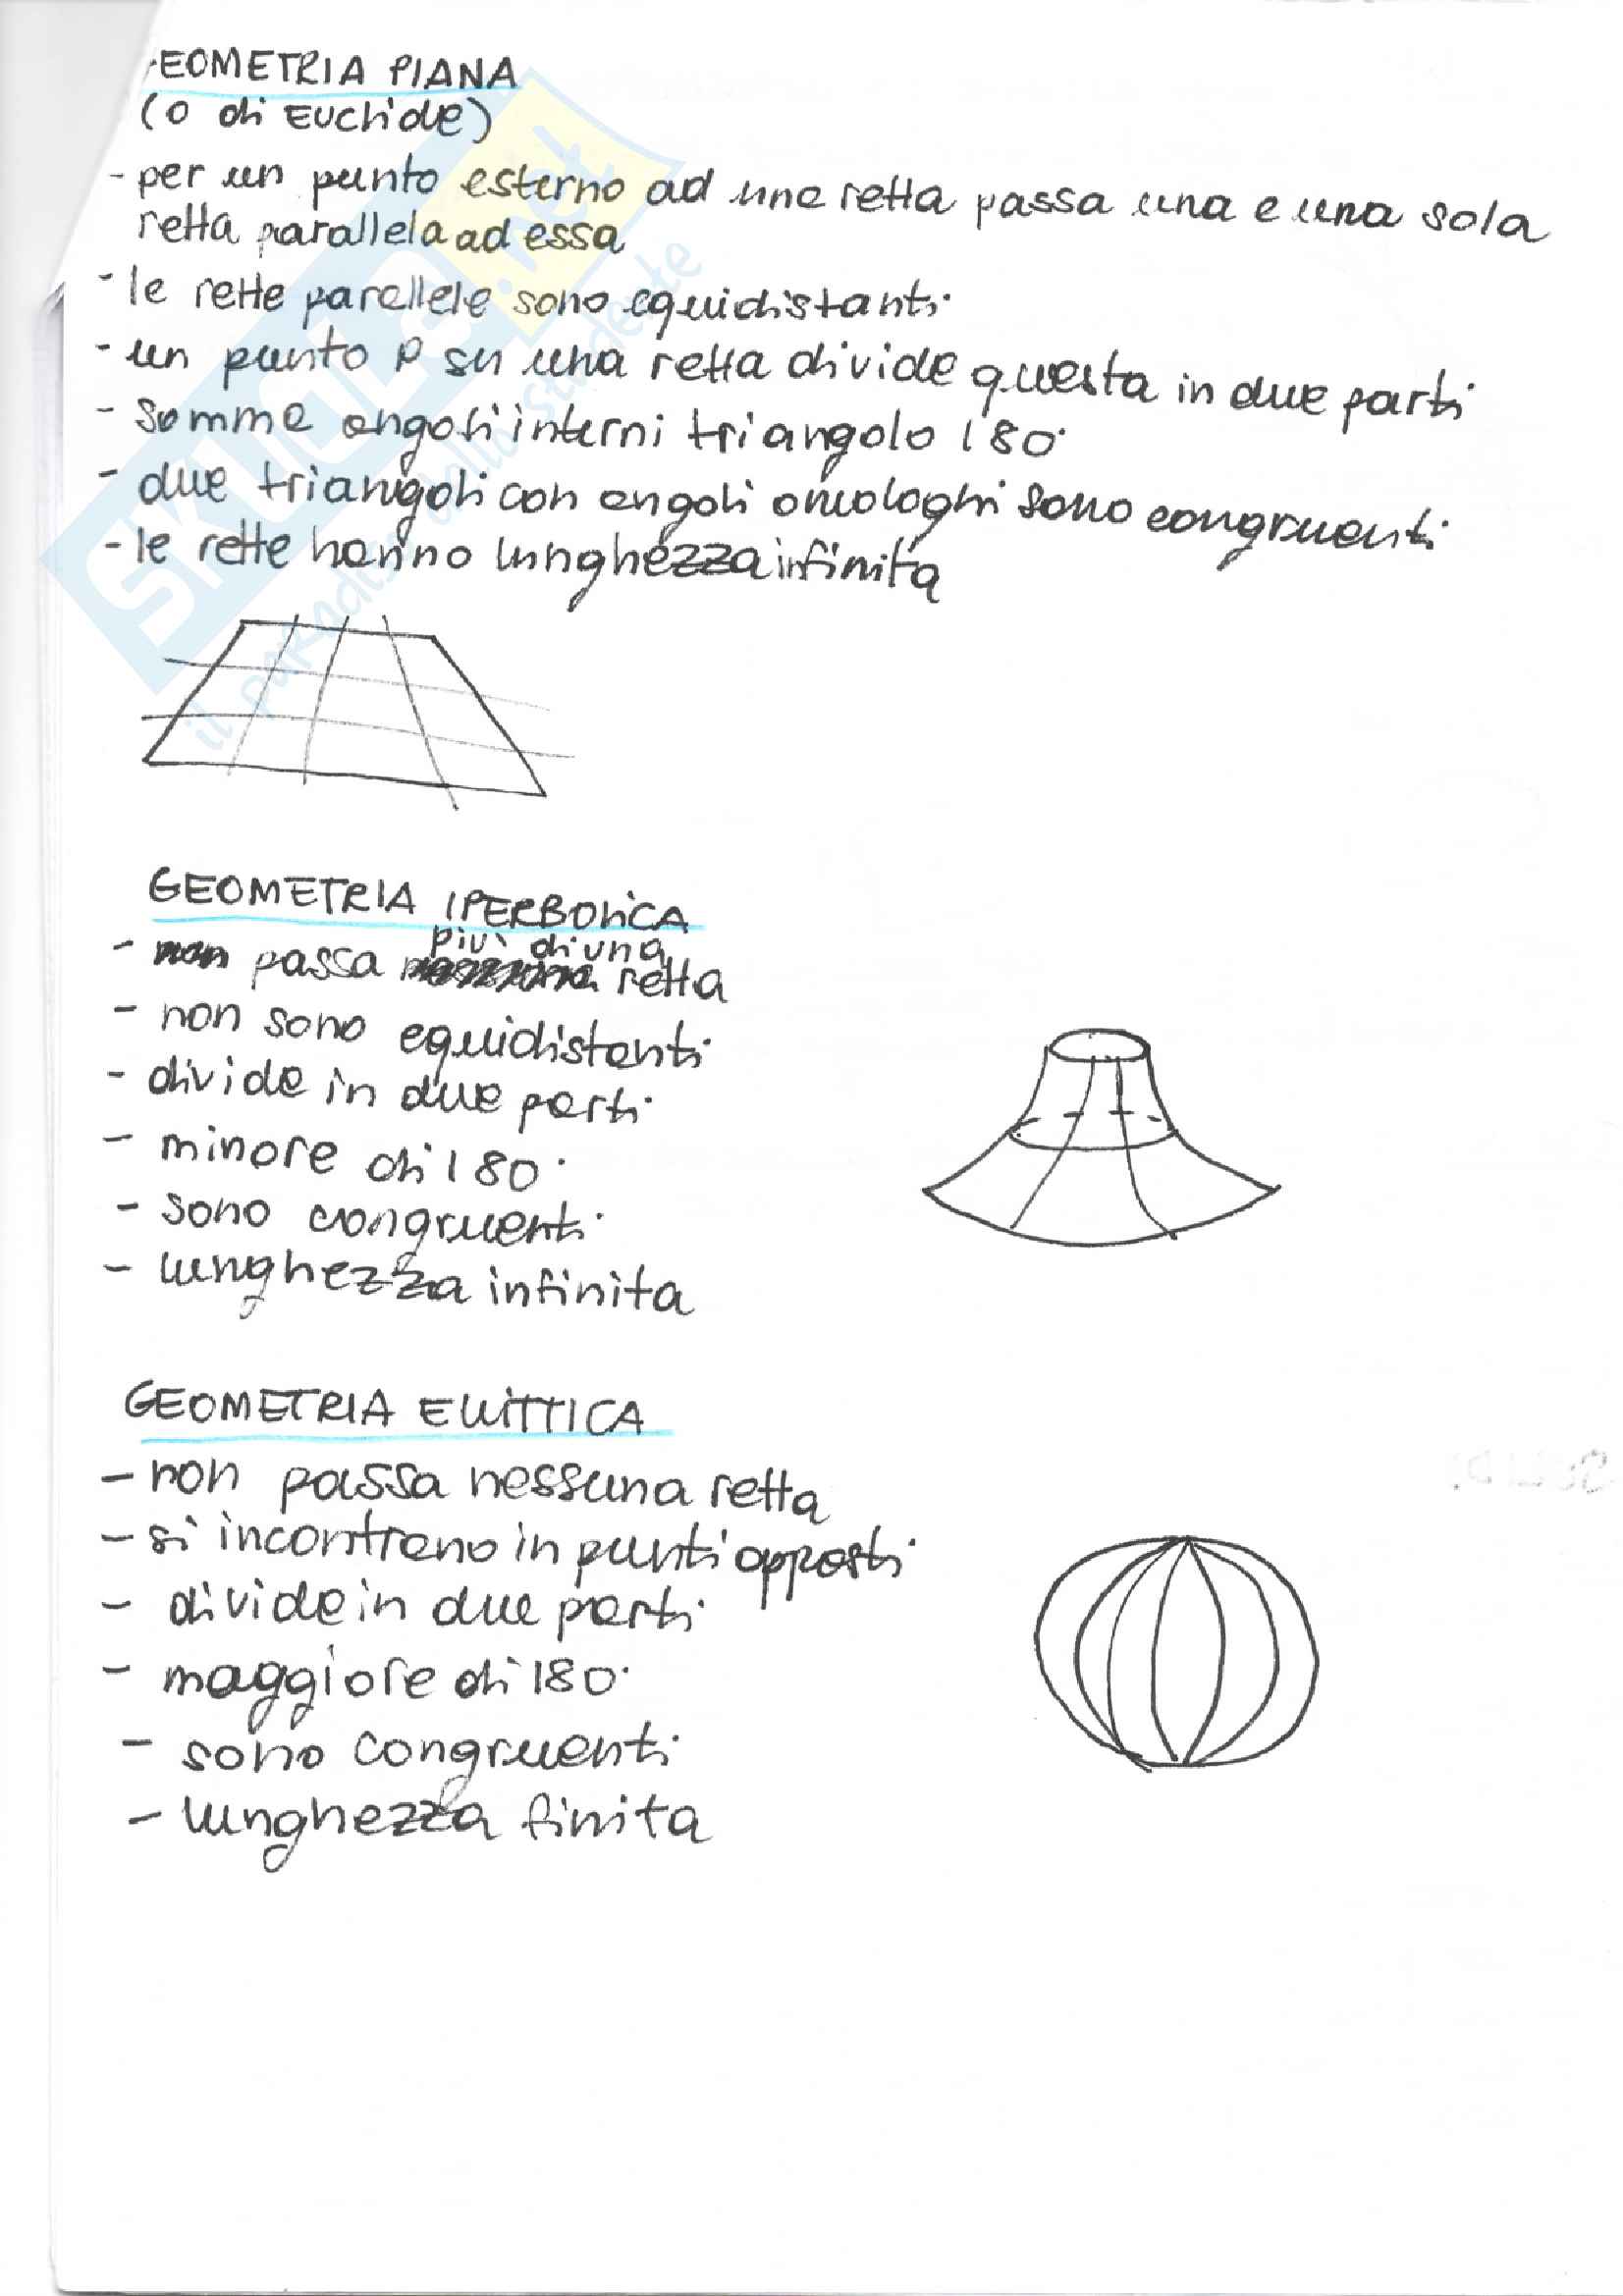 EOMETRIA PIANA
(o di Euclide)
- per un punto esterno ad una retta passa una e una sola
retta parallela ad essa
- le rette parallele sono equidistanti
- un punto P su una retta divide questa in due parti
- somma angoli interni triangolo 180°
- due triangoli con angoli omologhi sono congruenti
- le rette hanno lunghezza infinita
GEOMETRIA IPERBOLICA
- passa più di una retta
- non sono equidistanti
- divide in due parti
- minore di 180°
- sono congruenti
- lunghezza infinita
GEOMETRIA ELLITTICA
- non passa nessuna retta
- si incontrano in punti opposti
- divide in due parti
- maggiore di 180°
- sono congruenti
- lunghezza finita
SKUOLA.net
il paradiso dello studente